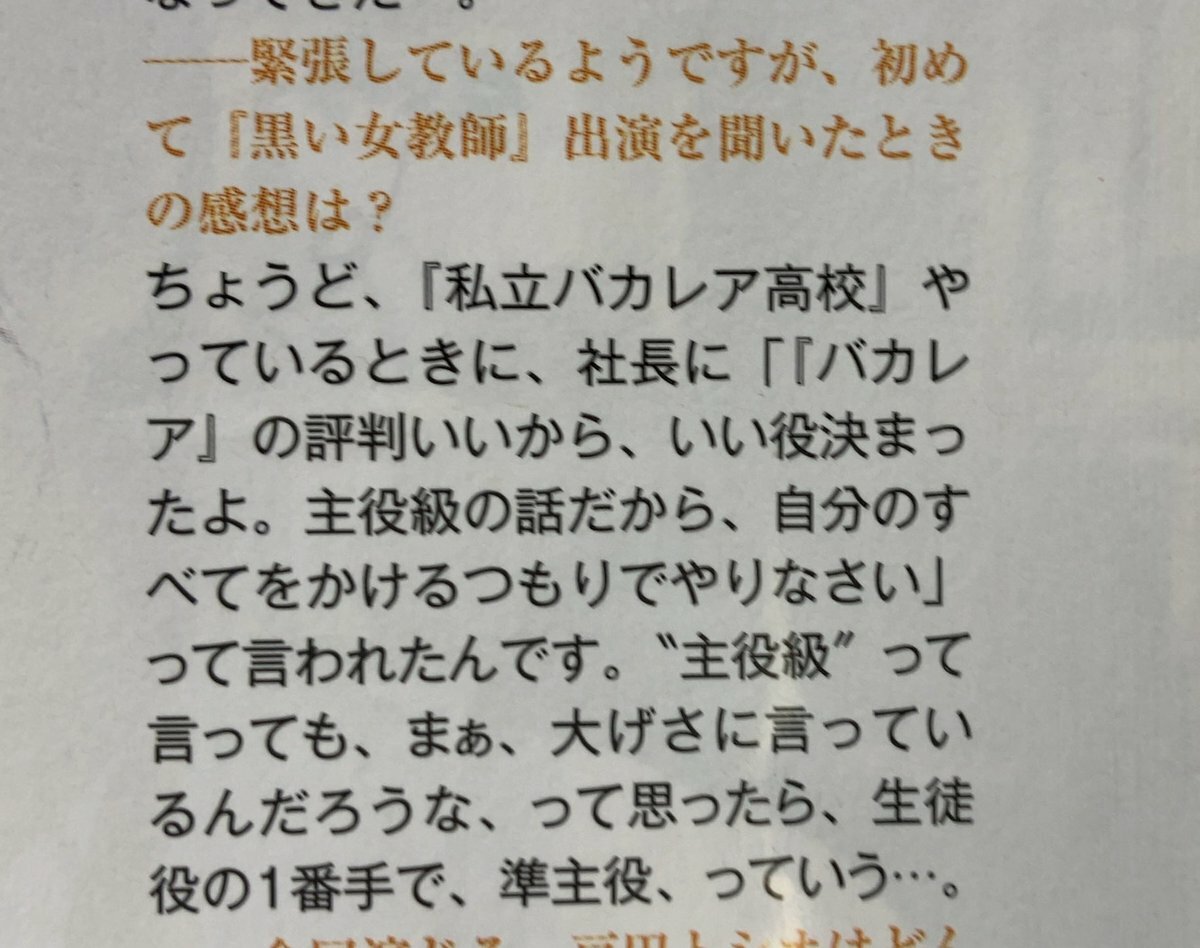 ――緊張しているようですが、初め
て『黒い女教師』出演を聞いたとき
の感想は？
ちょうど、『私立バカレア高校』や
っているときに、社長に「『バカレ
ア』の評判いいから、いい役決まっ
たよ。主役級の話だから、自分のす
べてをかけるつもりでやりなさい」
って言われたんです。〝主役級〟って
言っても、まぁ、大げさに言ってい
るんだろうな、って思ったら、生徒
役の1番手で、準主役、っていう…。